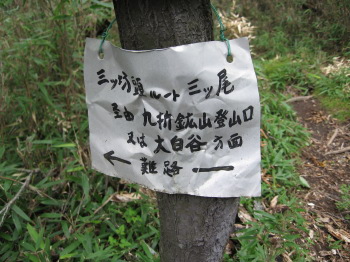 三ッ坊頭ルート 三ッ尾
至由 九折鉱山登山口
又は 大白谷方面
← 難路 ー